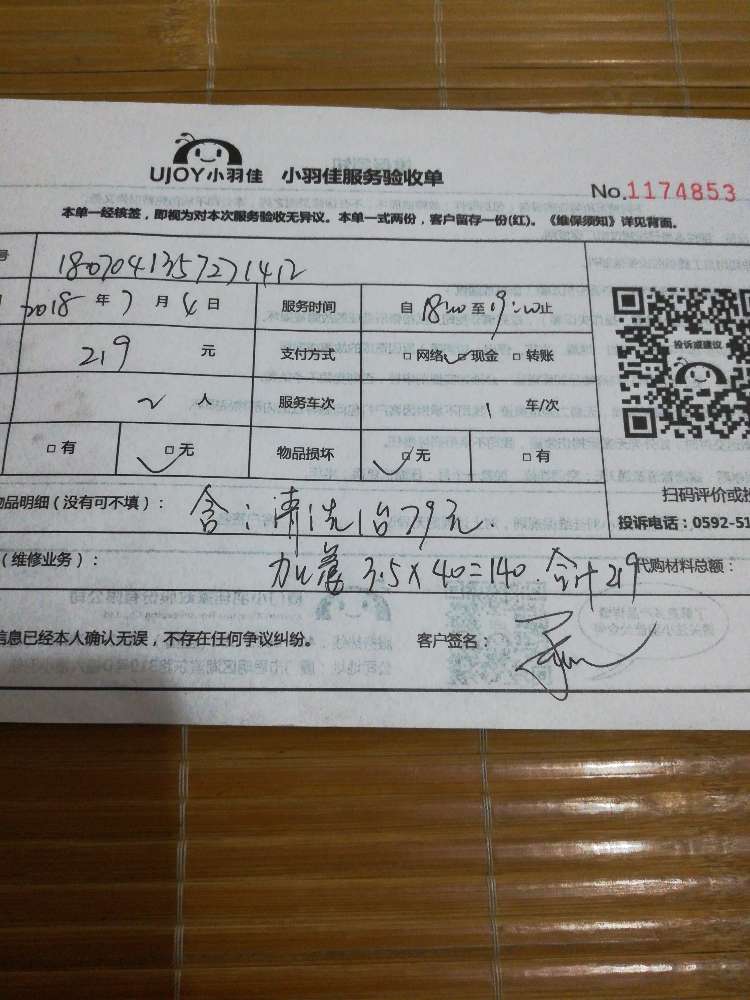 UJOY小羽佳 小羽佳服务验收单
No.1174853
本单一经核签，即视为对本次服务验收无异议。本单一式两份，客户留存一份(红)。《维保须知》详见背面。
号 1807041357271412
2018年7月4日 服务时间 自18:00至19:00止
219元 支付方式 □网络 □现金 □转账
2人 服务车次 1车/次
□有 □无 物品损坏 □无 □有
投诉或建议
扫码评价或投
投诉电话：0592-51
物品明细（没有可不填）： 含：清洗 79元
（维修业务）： 3.5×40=140 合计219 代购材料总额：
信息已经本人确认无误，不存在任何争议纠纷。 客户签名：